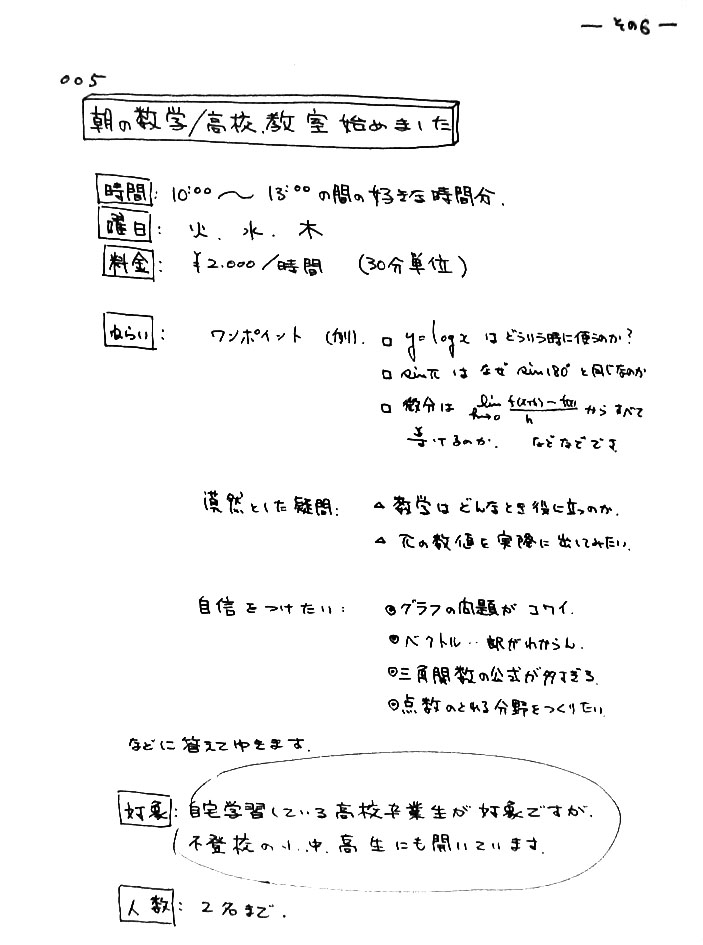 — その6 —
005
朝の数学/高校.教室始めました
時間: 10:00 〜 13:00 の間の好きな時間分.
曜日: 火. 水. 木
料金: ¥2.000/時間 (30分単位)
ねらい: ワンポイント (例). □ y=log x はどういう時に使うのか?
□ sinπ は なぜ sin180° と同じなのか
□ 微分は lim h→0 f(x+h)-f(x) / h からすべて
導いてるのか. などなどです.
漠然とした疑問: △ 数学はどんなとき役に立つのか.
△ πの数値を実際に出してみたい.
自信をつけたい: ◎グラフの問題が コワイ.
◎ベクトル‥訳がわからん.
◎三角関数の公式が多すぎる.
◎点数のとれる分野をつくりたい
などに答えてゆきます.
対象: 自宅学習している高校卒業生が対象ですが.
不登校の小.中.高生にも開いています.
人数: 2名まで.